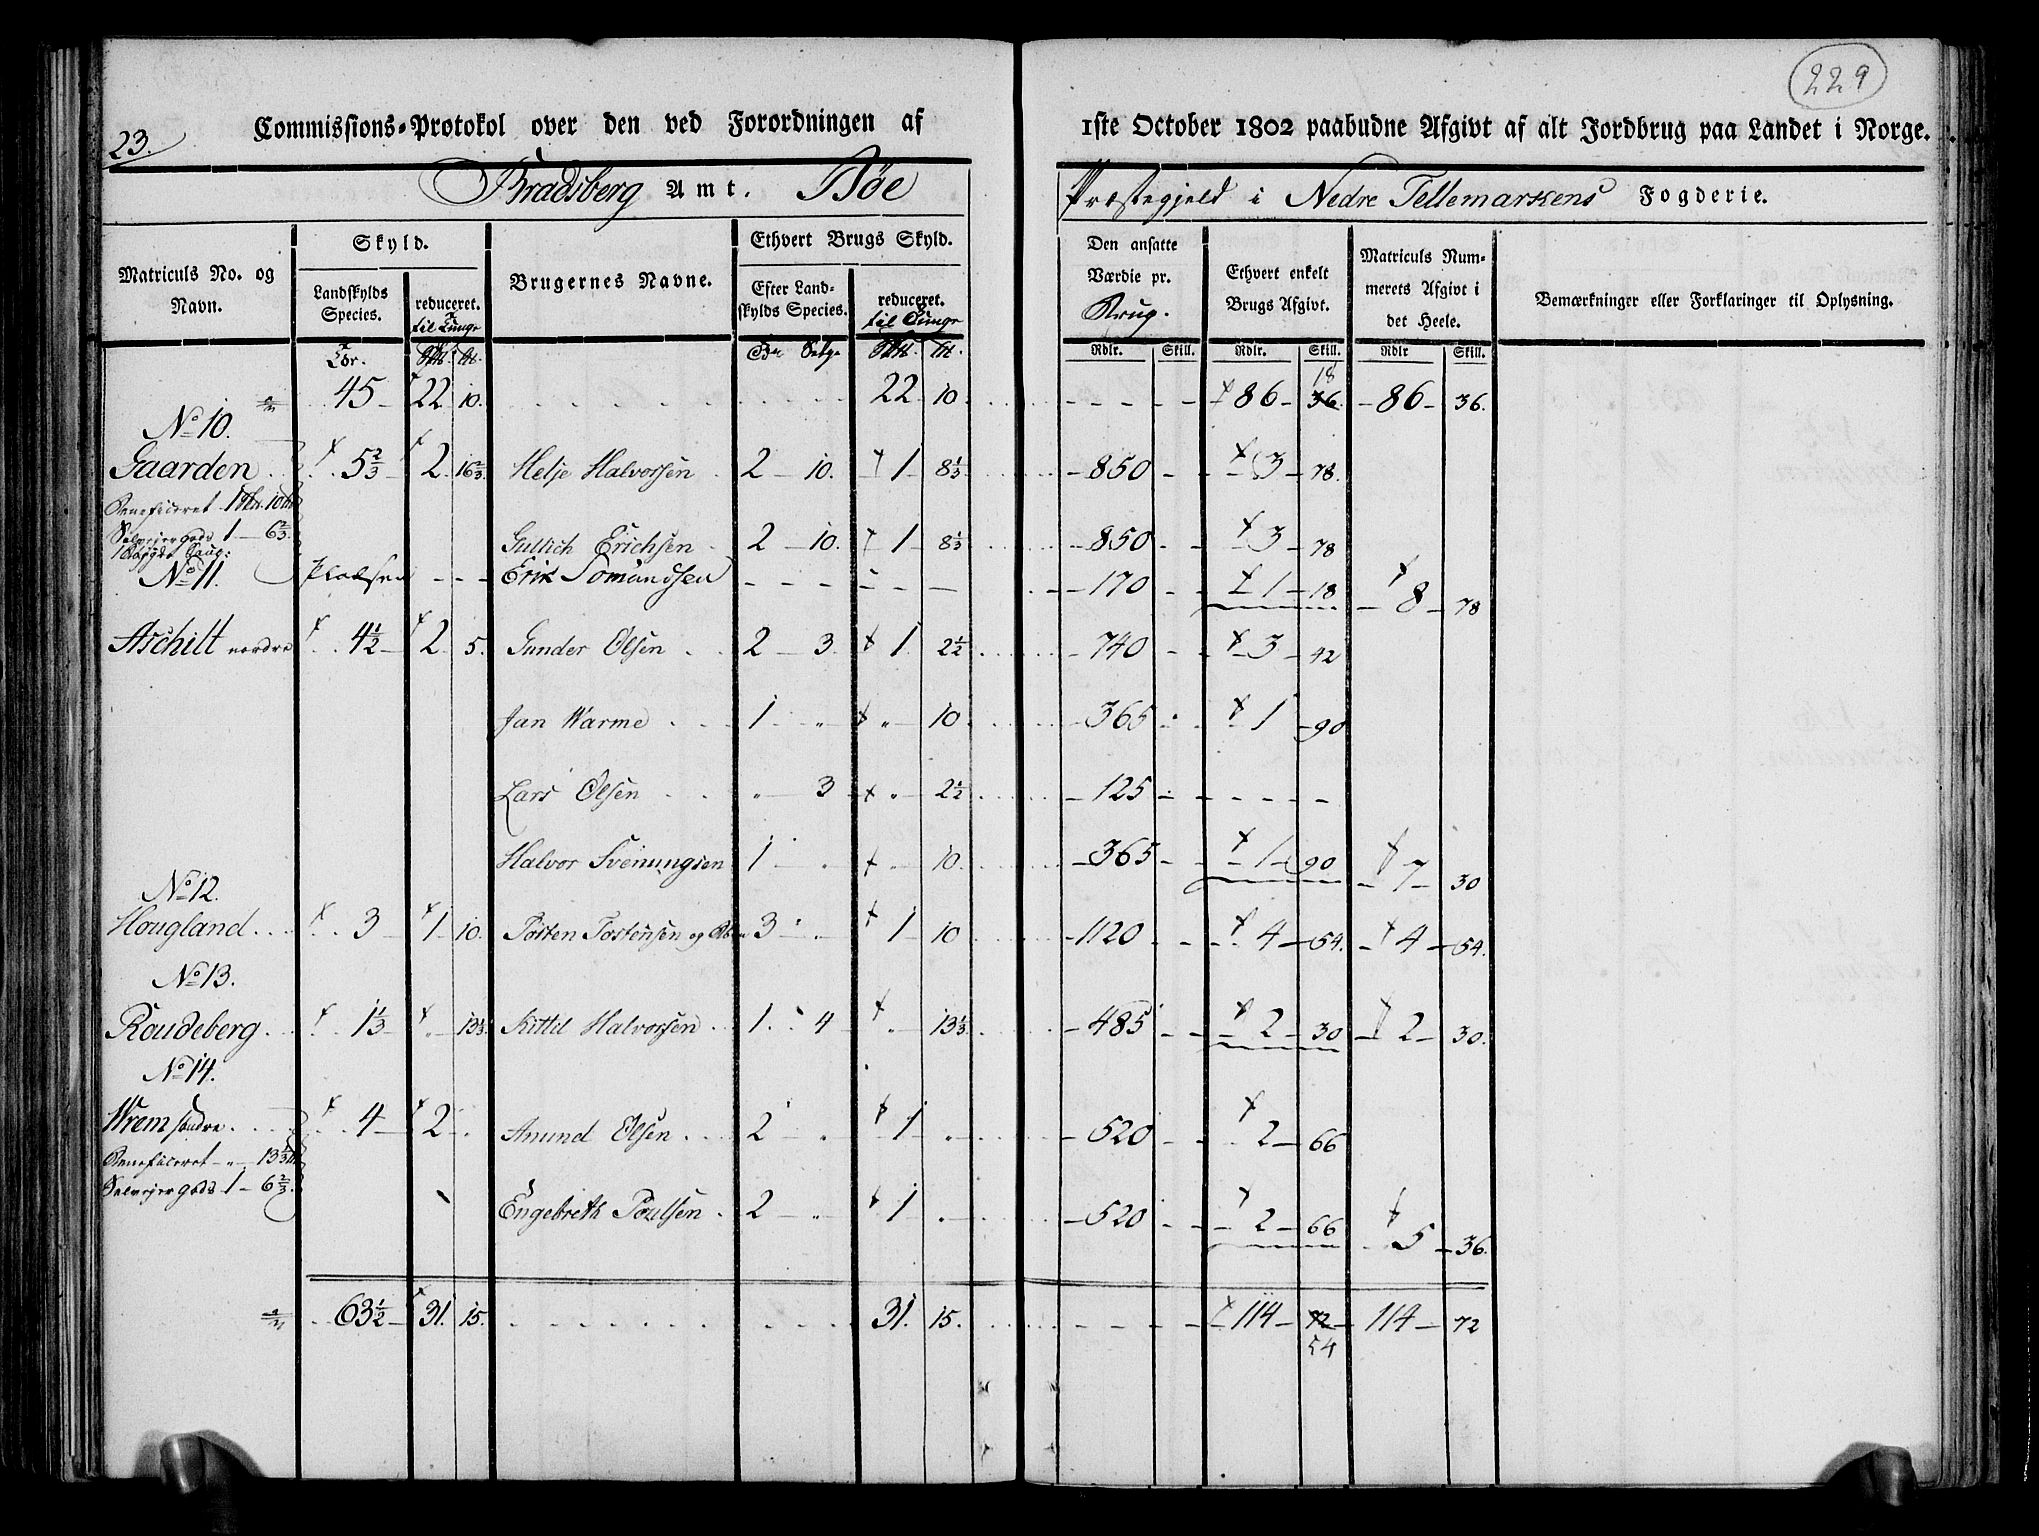 229
23.
Commissions-Protokol over den ved Forordningen af 1ste October 1802 paabudne Afgivt af alt Jordbrug paa Landet i Norge.
Bradsberg Amt. Bøe Præstegjeld i Nedre Tellemarkens Fogderie.
Matriculs No. og Navn.
Skyld.
Landskylds Species.
reduceret. til Tunge
Brugernes Navne.
Ethvert Brugs Skyld.
Efter Landskylds Species.
reduceret. til Tunge
Den ansatte Værdie pr. Brug.
Ethvert enkelt Brugs Afgivt.
Matriculs Nummerets Afgivt i det Heele.
Bemærkninger eller Forklaringer til Oplysning.
Rdlr. Skill. Rdlr. Skill. Rdlr Skill.
45 22 10. 22 10 86 36. 18 86 36.
No 10.
Gaarden 5 2/3 2 16 2/3 Helje Halvorsen 2 10. 1 8 1/3 850 3 78.
Beneficeret 1 10
Selvejergods 1 6 2/3 Gullich Erichsen 2 10. 1 8 1/3 850 3 78
Pladsen Erik Tomundsen 170 1 18 8 78
No 11.
Aschilt nordre 4 1/2 2 5. Gunder Olsen 2 3 1 2 1/2 740 3 42
Jan Warme 1 " " 10 365 1 90
Lars Olsen " 3 " 2 1/2 125
Halvor Svenungsen 1 " " 10 365 1 90 7 30
No 12.
Hougland 3 1 10. Tosten Tostensen og 3 " 1 10 1120 4 54. 4 54.
No 13.
Roudeberg 1 1/3 " 13 1/3 Kittil Halvorsen 1. 4 " 13 1/3 485 2 30 2 30.
No 14.
Wrem søndre 4 2 " Anund Olsen 2 " 1 " 520 2 66
Beneficeret " 13 1/3
Selvejergods 1 6 2/3. Engebreth Poulsen 2 " 1 " 520 2 66 5 36.
63 1/2 31. 15. 31. 15. 114 72 114 72
54